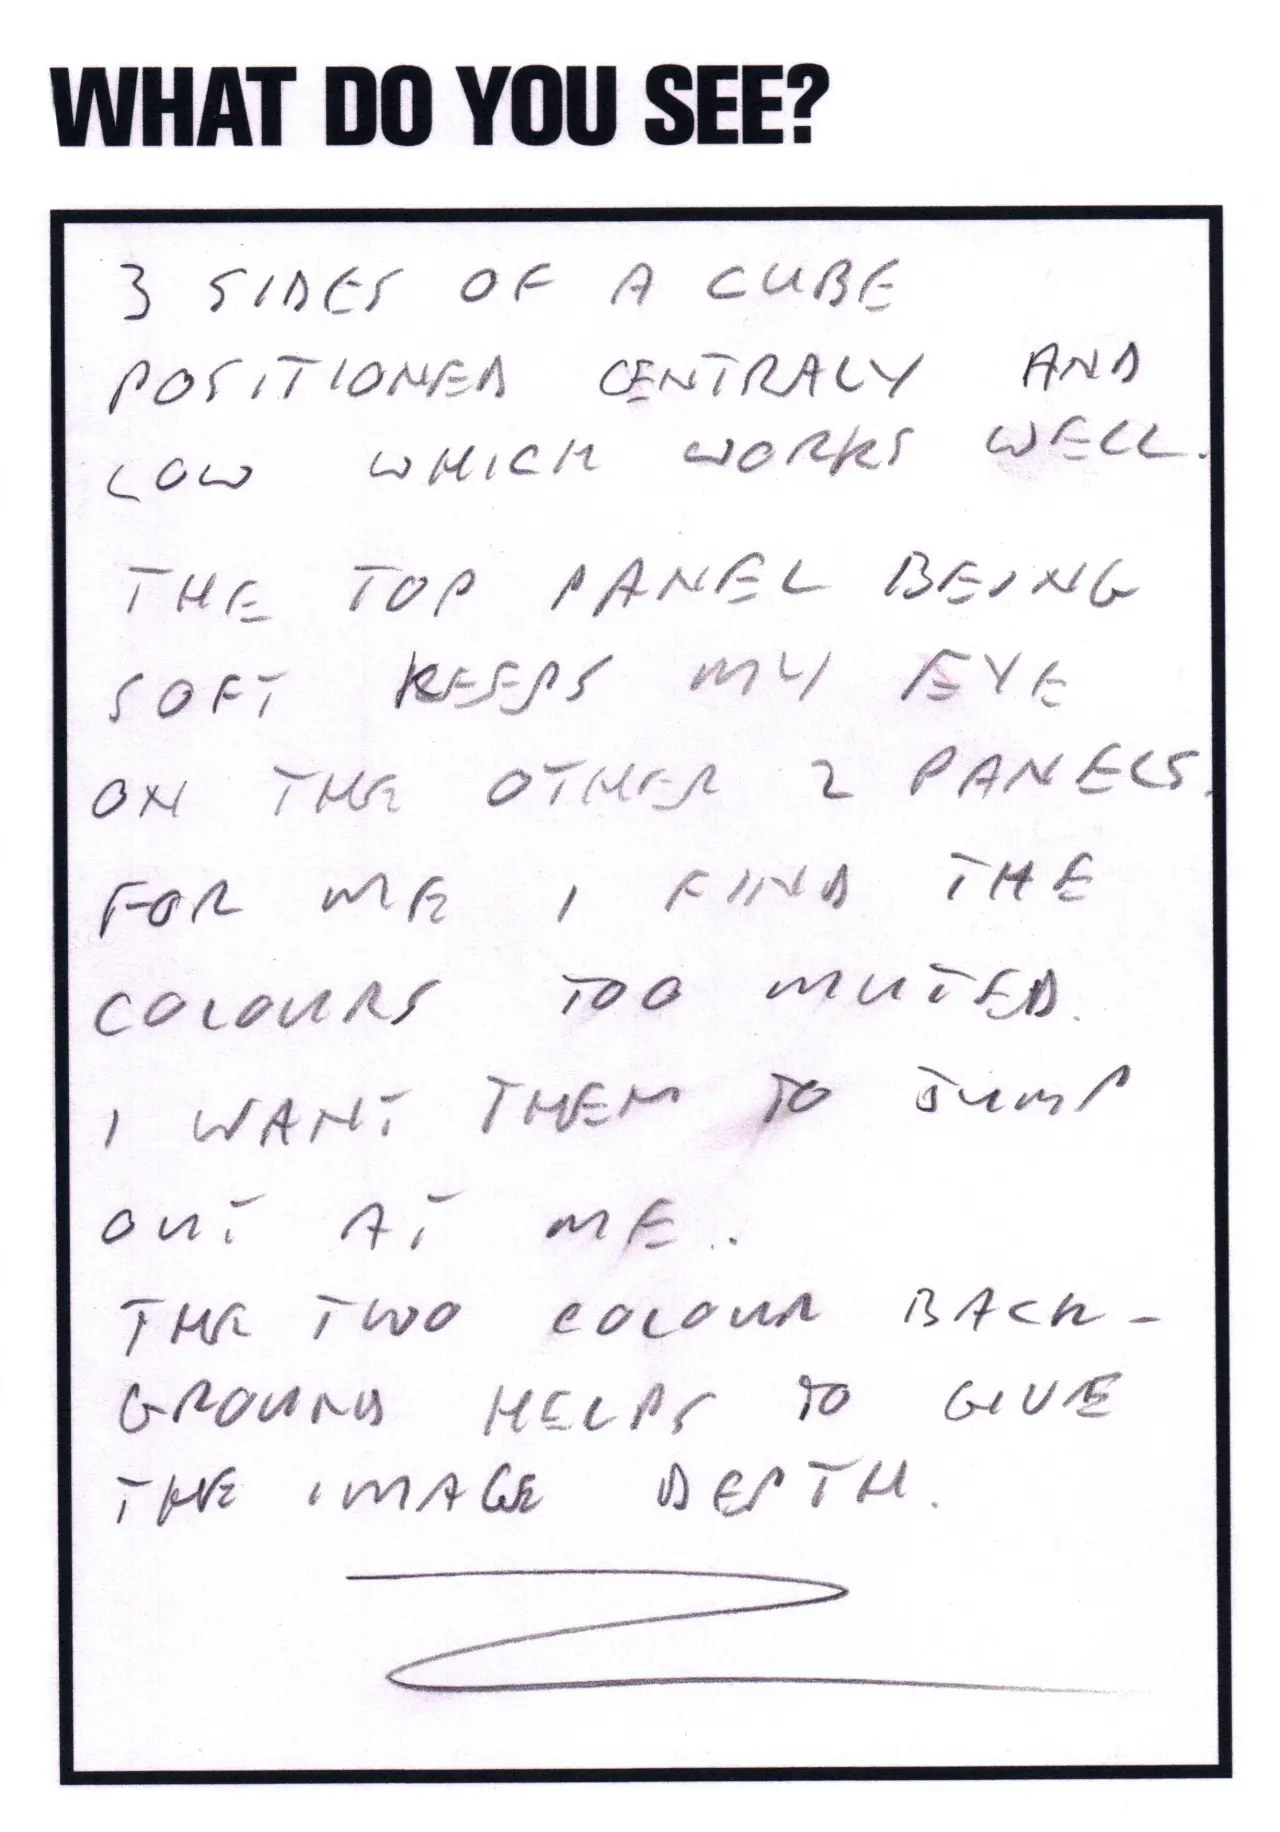 WHAT DO YOU SEE?
3 SIDES OF A CUBE
POSITIONED CENTRALY AND
LOW WHICH WORKS WELL.
THE TOP PANEL BEING
SOFT KEEPS MY EYE
ON THE OTHER 2 PANELS.
FOR ME I FIND THE
COLOURS TOO MUTED.
I WANT THEM TO JUMP
OUT AT ME..
THE TWO COLOUR BACK-
GROUND HELPS TO GIVE
THE IMAGE DEPTH.